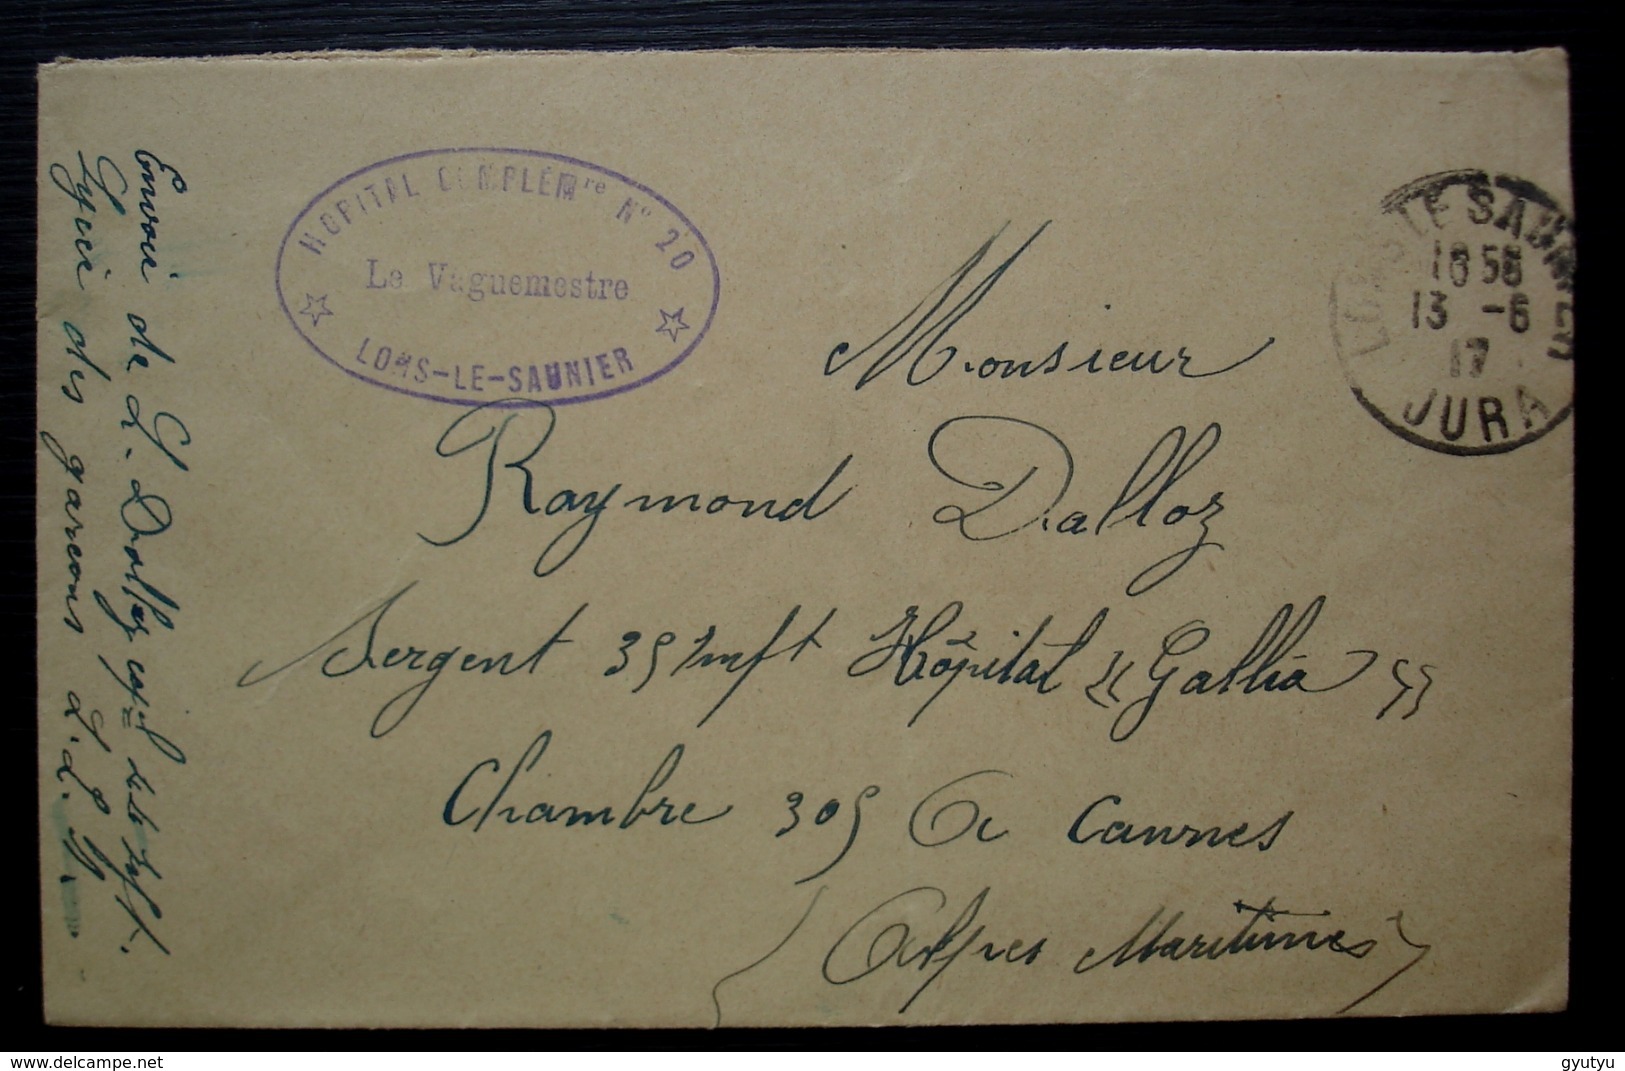 HOPITAL COMPLÉMre No 20
Le Vaguemestre
LONS-LE-SAUNIER
LONS LE SAUNIER
16 55
13 -6
17
JURA
Monsieur
Raymond Dalloz
Sergent 35 Inft Hôpital "Gallia"
Chambre 305 A Cannes
(Alpes Maritimes)
Envoi de L. Dalloz
Lycée des garçons L.
www.delcampe.net
gyutyu